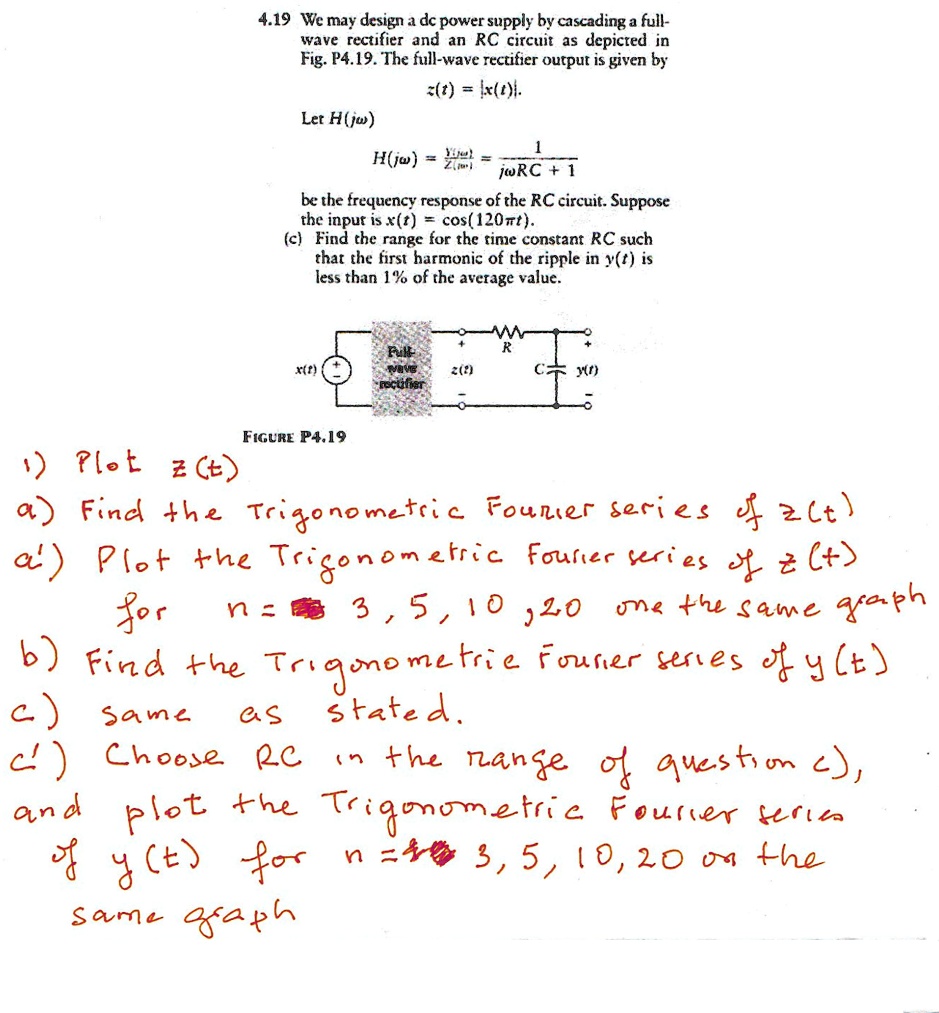 4.19 We may design a dc power supply by cascading a full-
wave rectifier and an RC circuit as depicted in
Fig. P4.19. The full-wave rectifier output is given by
z(t) = |x(t)|.
Let H(jω)
H(jω) = Y(jω)/Z(jω) = 1/(jωRC + 1)
be the frequency response of the RC circuit. Suppose
the input is x(t) = cos(120πt).
(c) Find the range for the time constant RC such
that the first harmonic of the ripple in y(t) is
less than 1% of the average value.
x(t) + − Full-wave rectifier + z(t) − R C + y(t) −
FIGURE P4.19
1) Plot z(t)
a) Find the Trigonometric Fourier series of z(t)
a') Plot the Trigonometric Fourier series of z(t)
for n = 3, 5, 10, 20 one the same graph
b) Find the Trigonometric Fourier series of y(t)
c) same as stated.
c') Choose RC in the range of question c),
and plot the Trigonometric Fourier series
of y(t) for n = 3, 5, 10, 20 on the
same graph